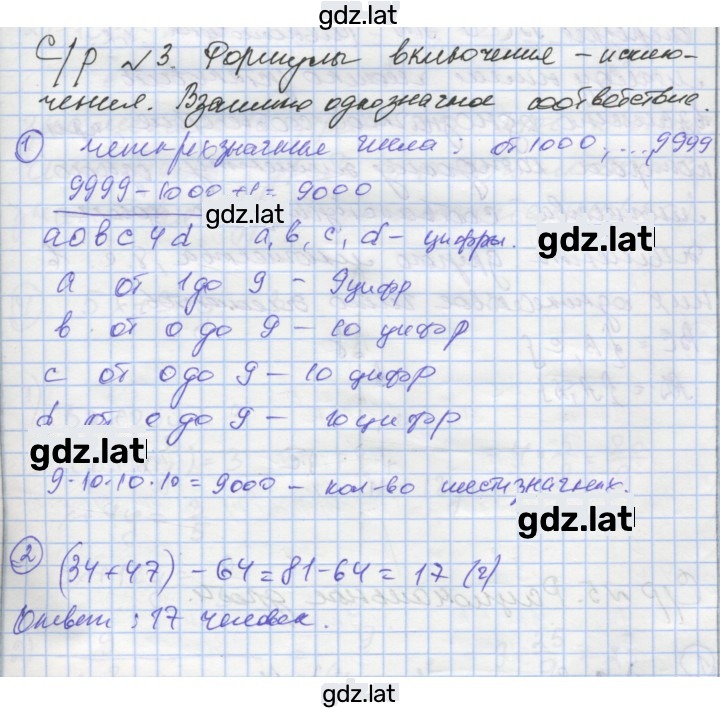 gdz.lat
С/р №3. Формулы включение - исклю-
чения. Взаимно однозначное соответствие.
1 четырёхзначные числа : от 1000, ..., 9999
9999 - 1000 + 1 = 9000
gdz.lat
a0bc4d a, b, c, d - цифры.
gdz.lat
a от 1 до 9 - 9 цифр
b от 0 до 9 - 10 цифр
c от 0 до 9 - 10 цифр
d от 0 до 9 - 10 цифр
gdz.lat
9·10·10·10 = 9000 - кол-во шестизначных.
gdz.lat
2 (34+47) - 64 = 81 - 64 = 17 (ч)
Ответ : 17 человек.
gdz.lat